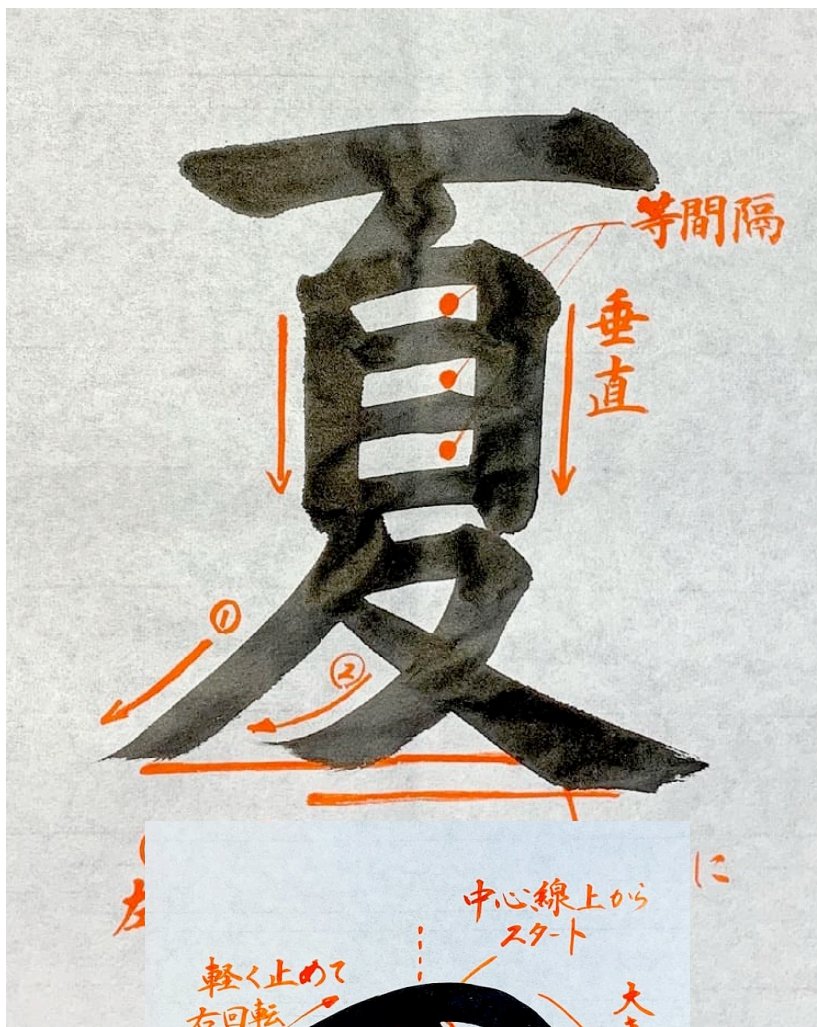 夏
等間隔
垂直
①
②
左
に
中心線上から
スタート
軽く止めて
右回転
大